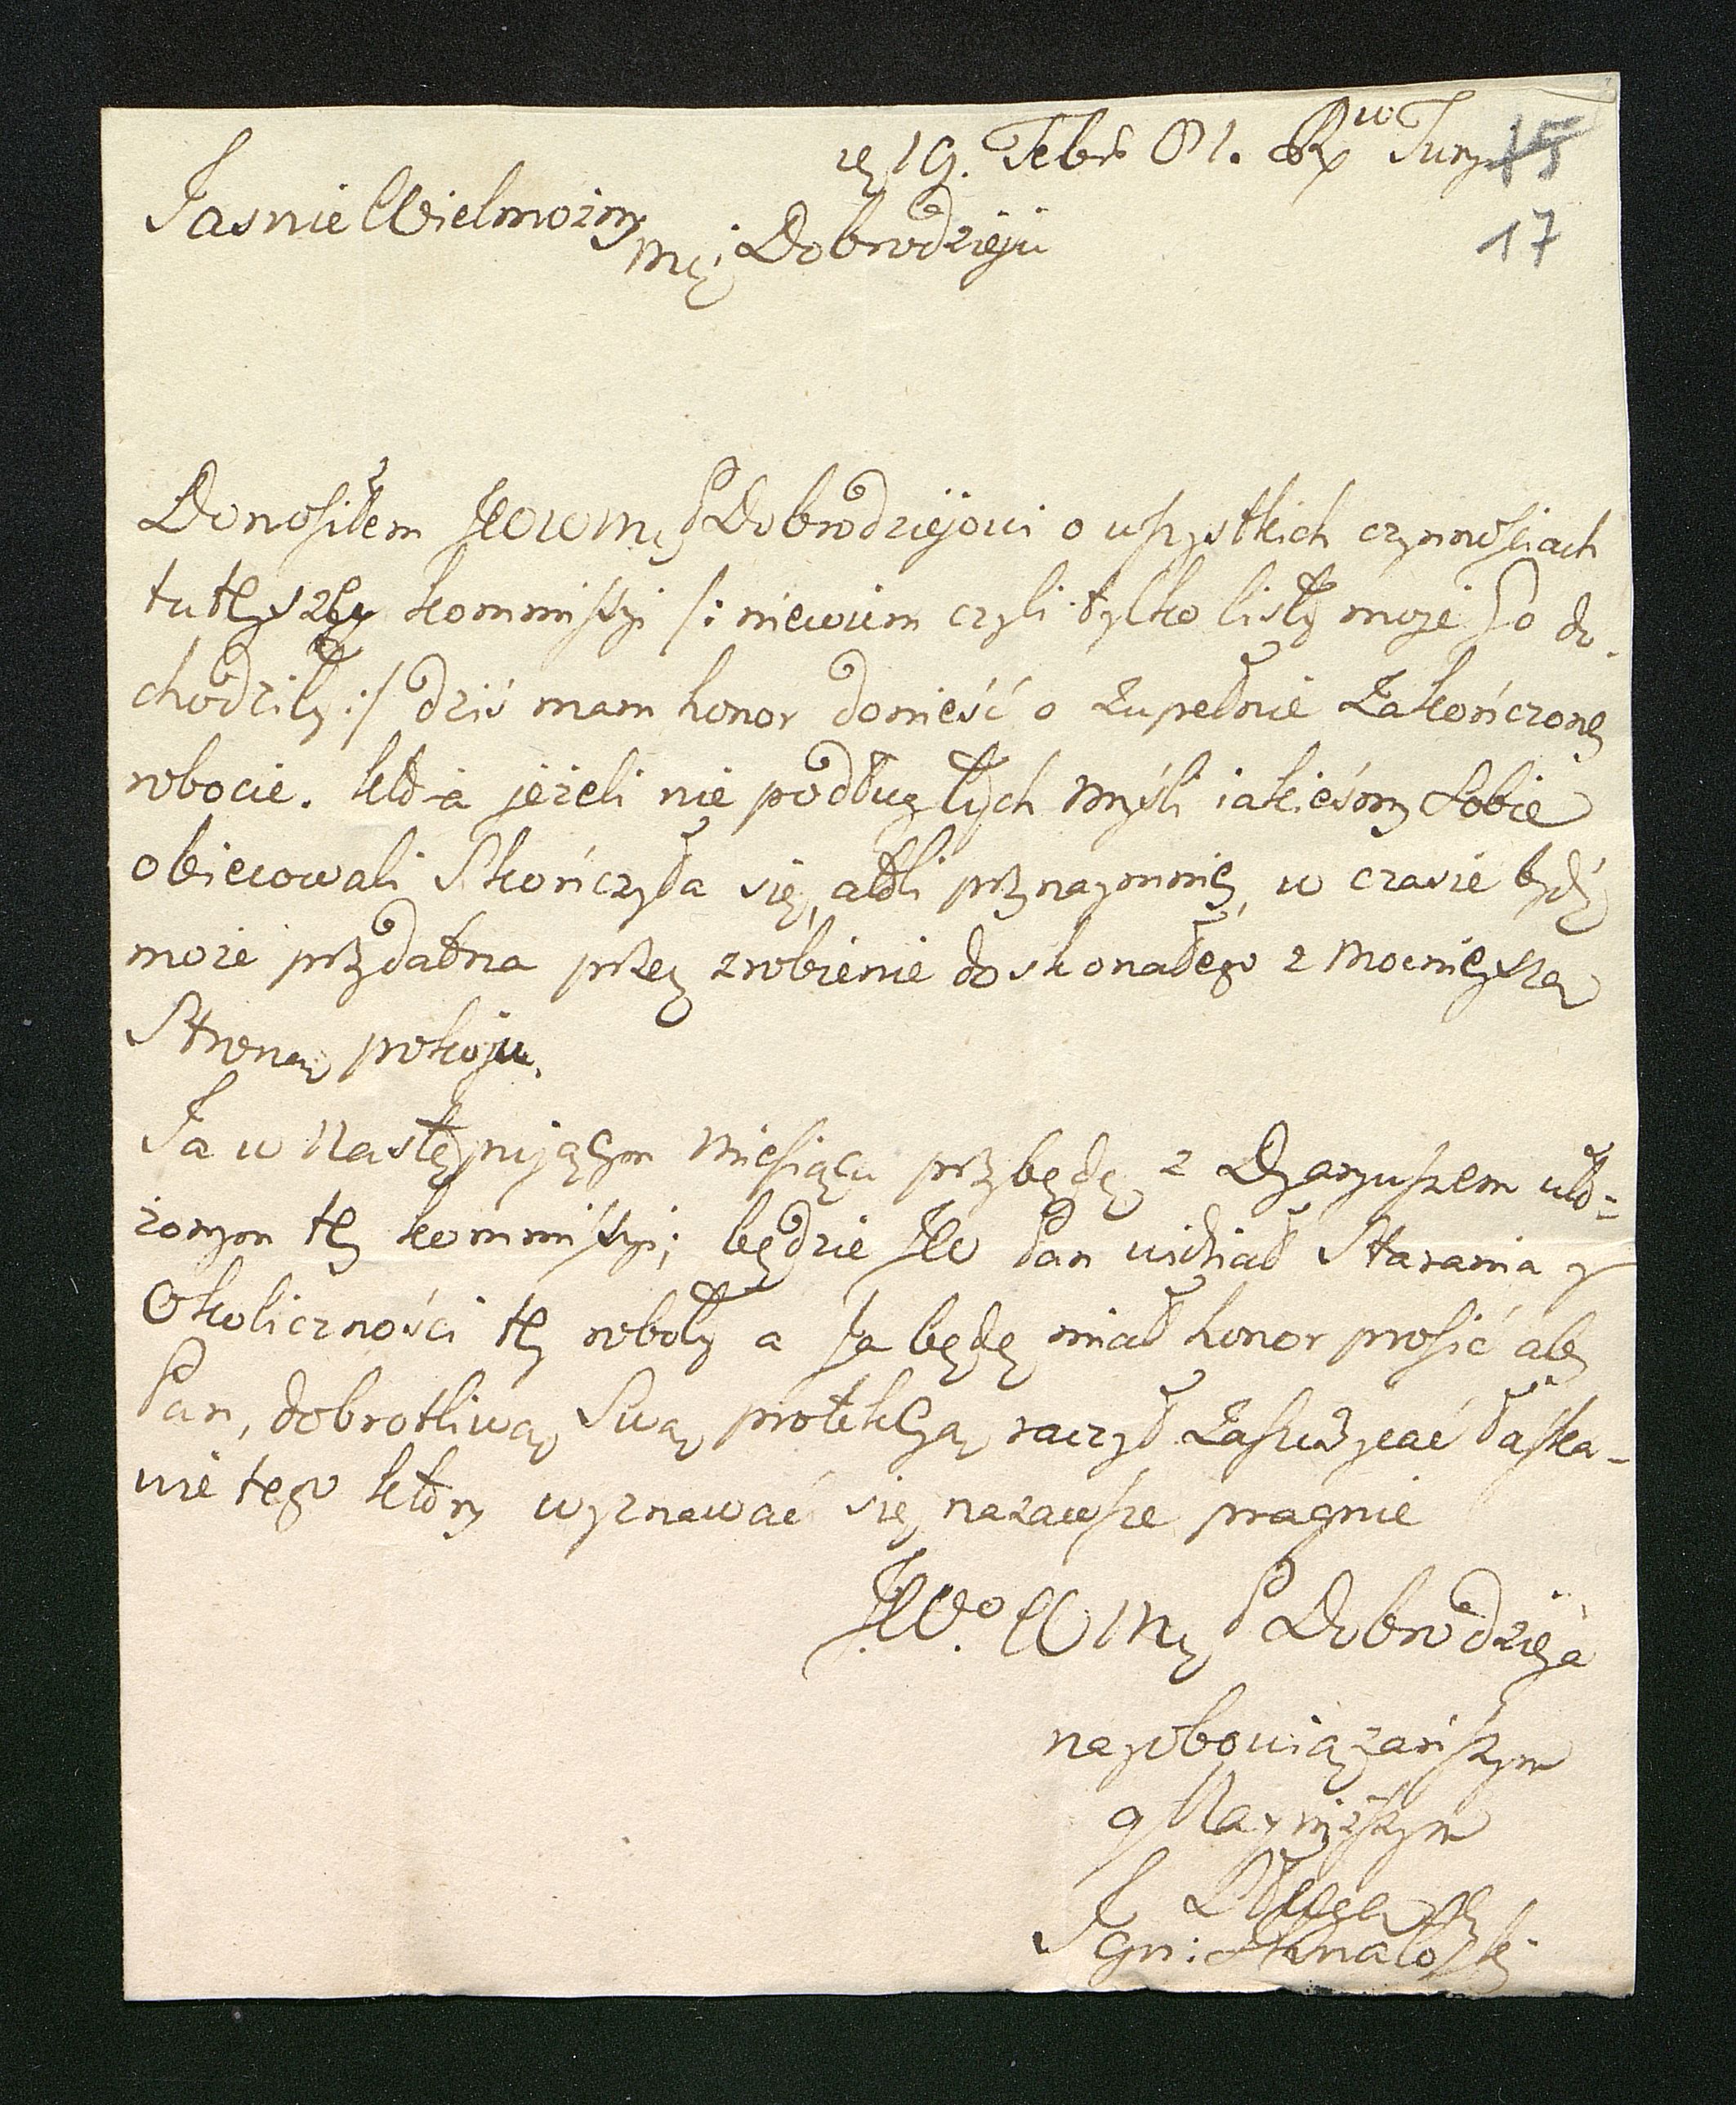 19. Febr 81. w
15
17
Jasnie Wielmożny
Mci Dobrodzieju
Donosiłem JWWMci P Dobrodziejowi o wszystkich czynnościach
tuteyszey kommissyi /: niewiem czyli tylko listy moje Go do-
chodziły :/ dziś mam honor donieść o zupełnie zakończoney
robocie. która jeżeli nie podług tych myśli iakieśmy sobie
obiecowali skończyła się, atoli przynaymniey, w czasie bydź
może przydatna przez zrobienie doskonałego z mocnieyszą
Stroną pokoju.
Ja w następującym miesiącu przybędę z Dyaryuszem uło=
żonym tey kommissyi; będzie JW Pan widział Starania y
Okoliczności tey roboty a Ja będę miał honor prosić aby
Pan, dobrotliwą Swą protekcyą raczył zaszczycać łaska-
wie tego który wyznawać się nazawsze pragnie
JWo WMci P Dobrodzieja
nayobowiązańszym
y Nayniższym
Sługą
Ign: